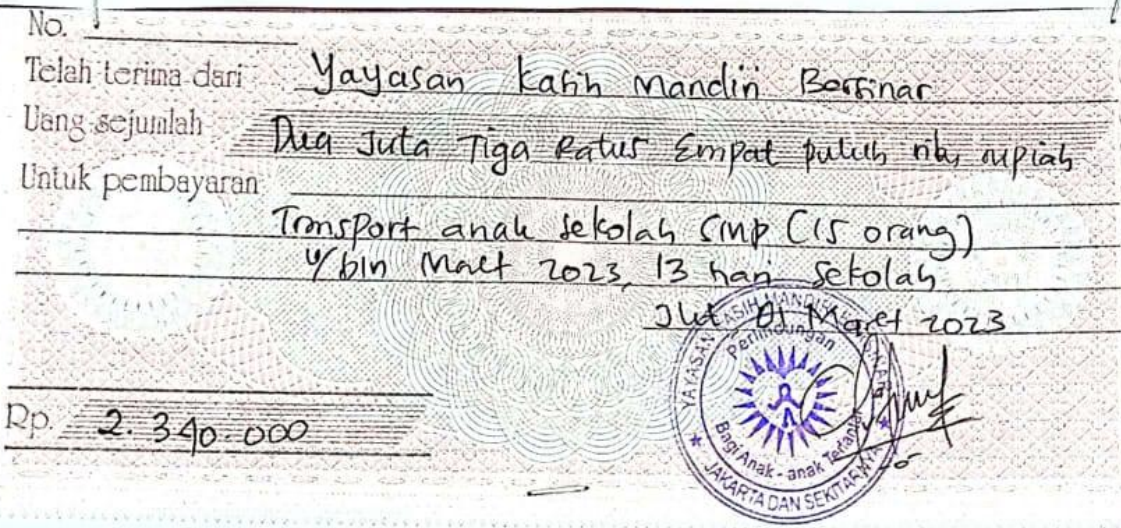 No.
Telah terima dari Yayasan Kasih Mandiri Bersinar
Uang sejumlah Dua Juta Tiga Ratus Empat puluh ribu rupiah
Untuk pembayaran
Transport anak sekolah SMP (15 orang)
u/bln Maret 2023, 13 hari sekolah
Jkt 01 Maret 2023
Rp. 2.340.000
YAYASAN KASIH MANDIRI
Perlindungan
Bagi Anak-anak
JAKARTA DAN SEKITARNYA